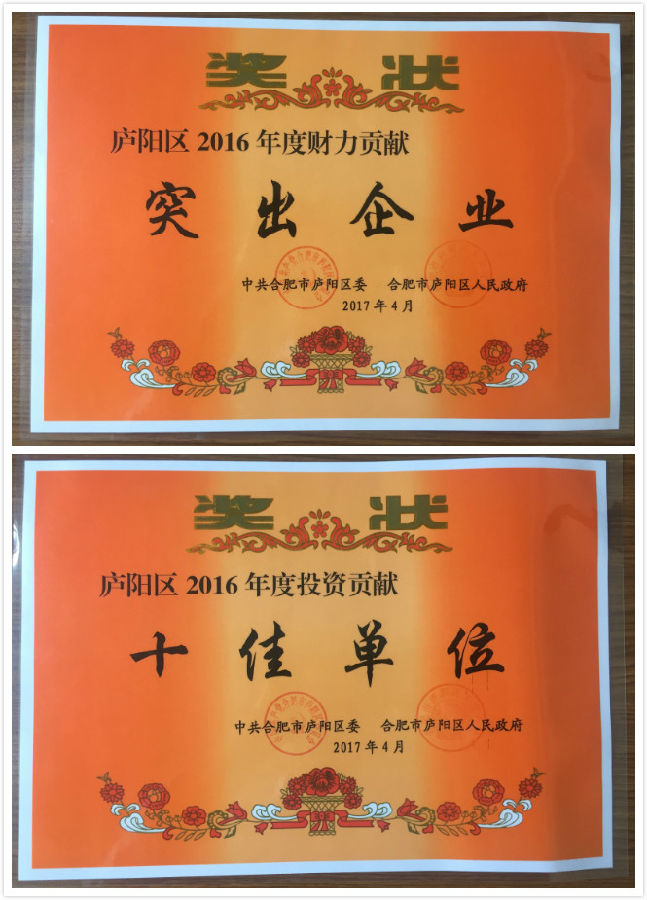 奖 状
庐阳区 2016 年度财力贡献
突出企业
中共合肥市庐阳区委 合肥市庐阳区人民政府
2017 年 4 月
奖 状
庐阳区 2016 年度投资贡献
十佳单位
中共合肥市庐阳区委 合肥市庐阳区人民政府
2017 年 4 月